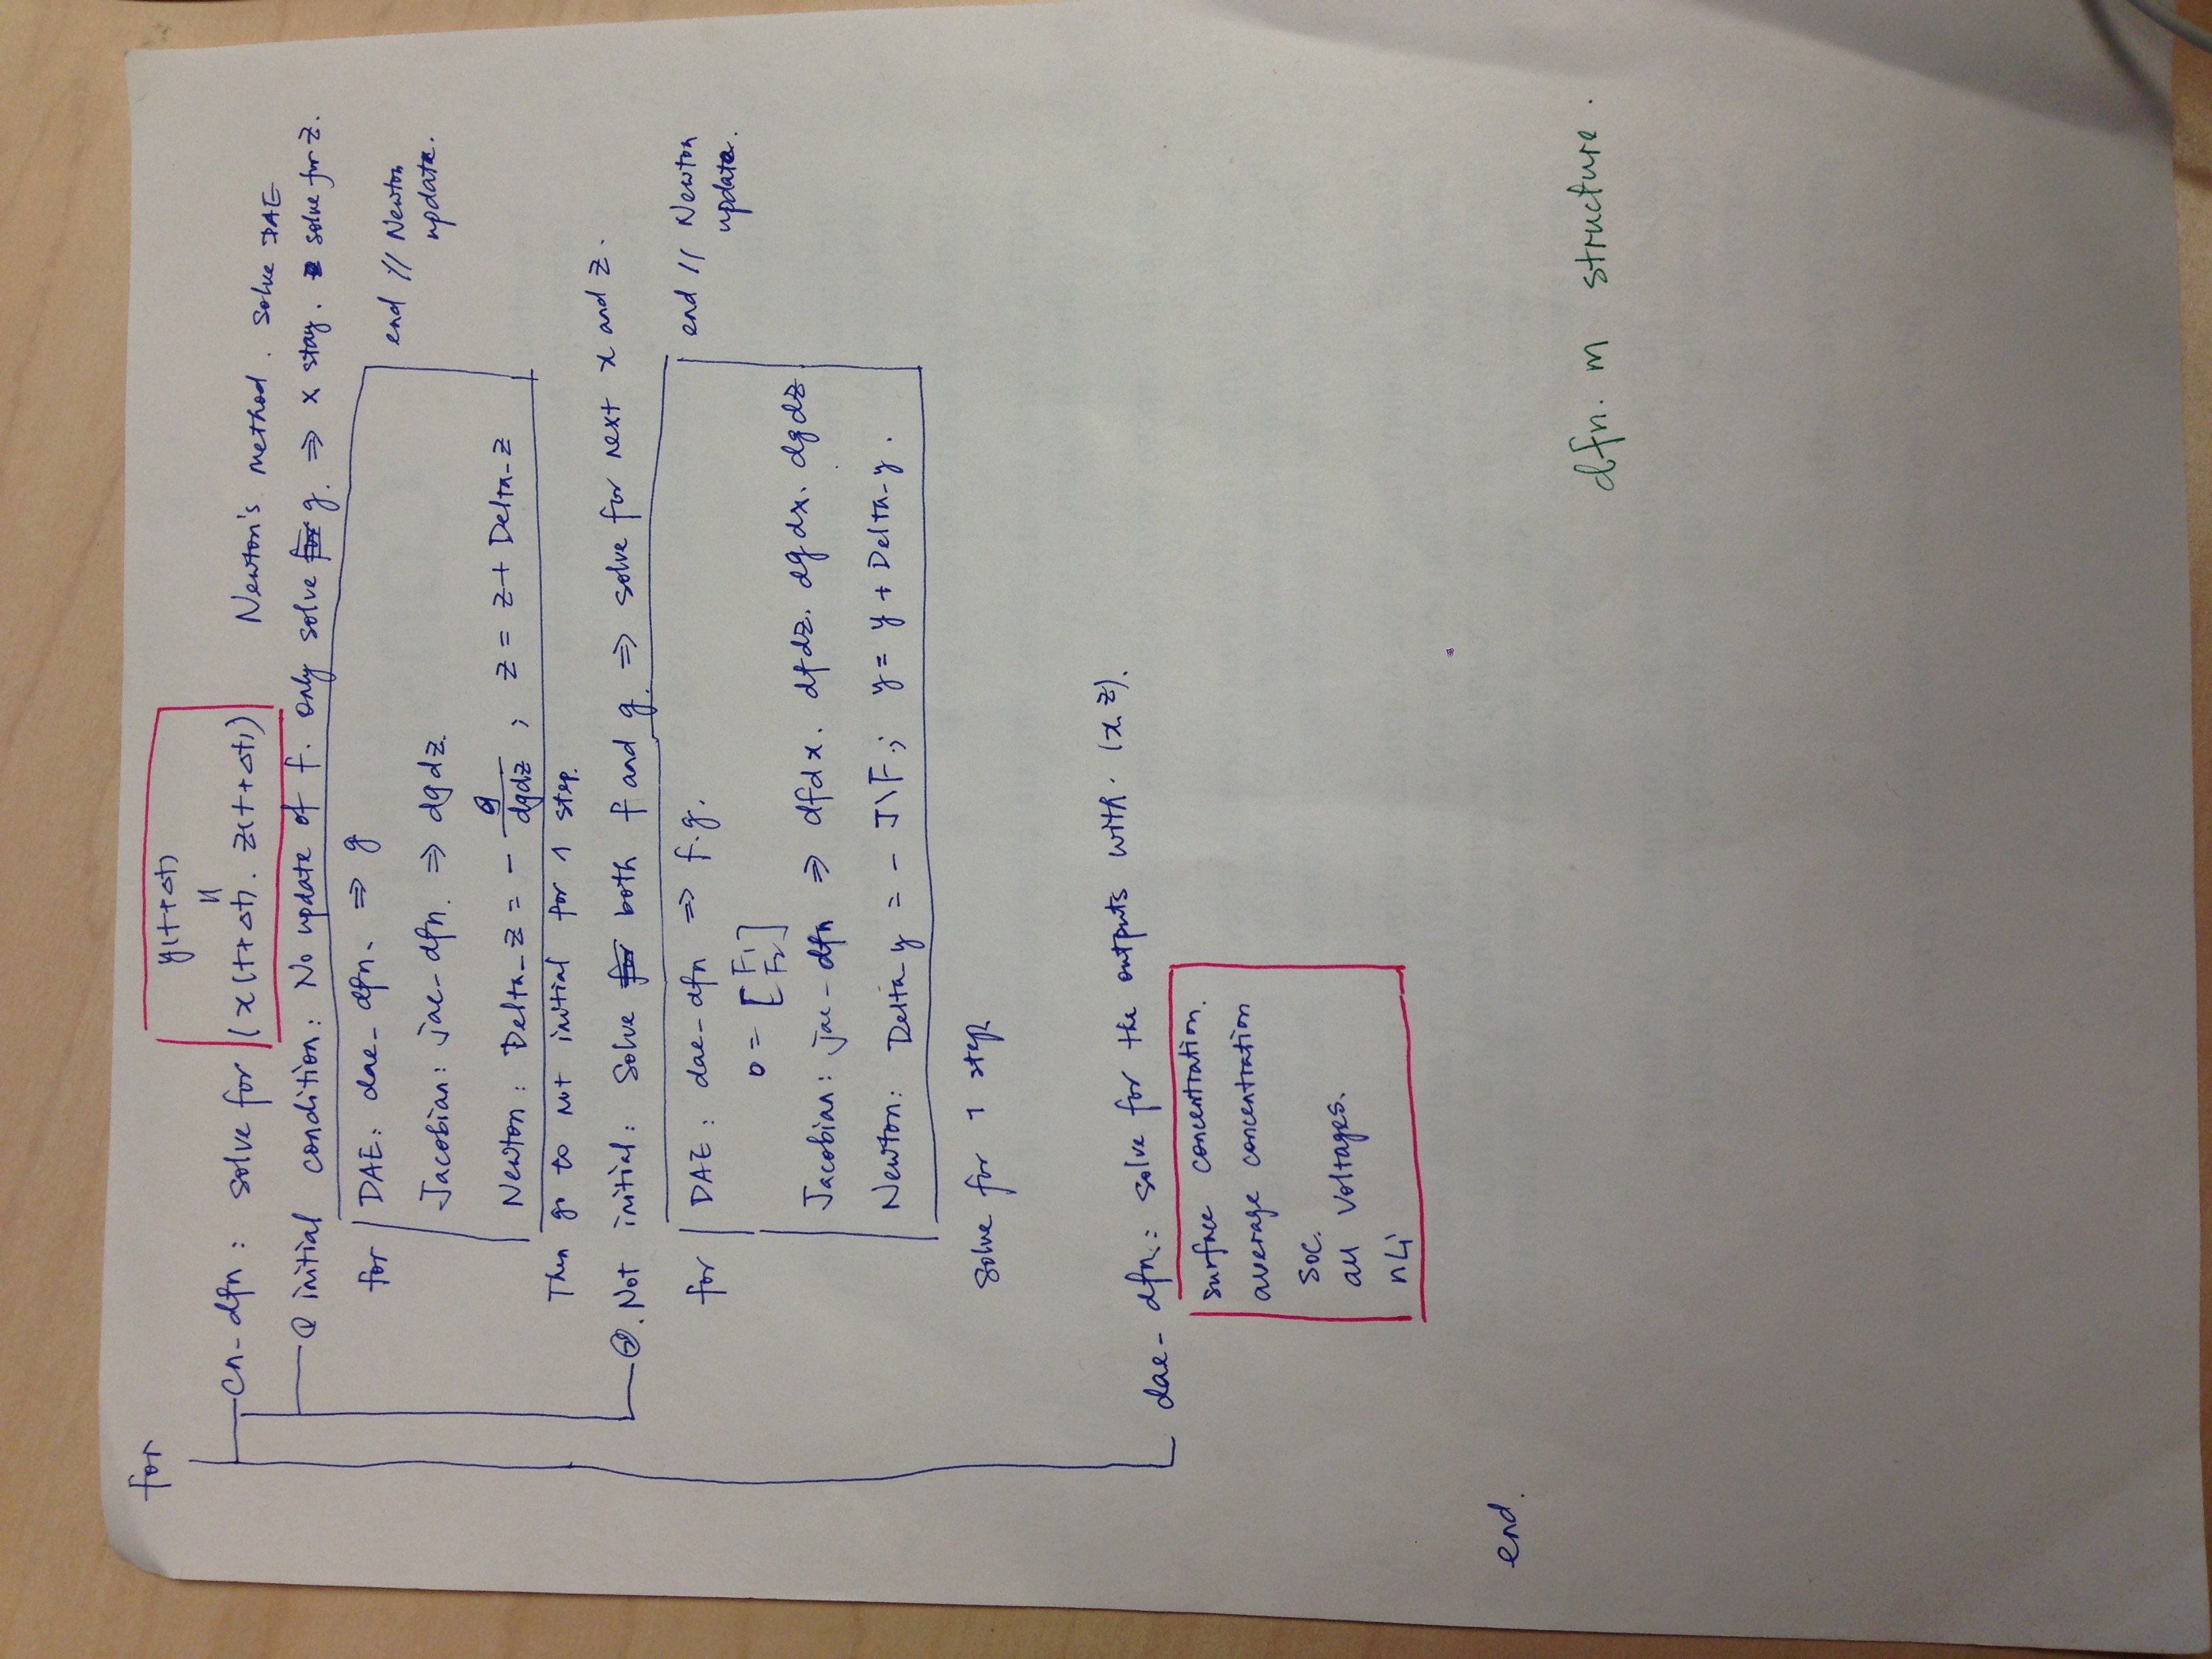 for
y(t+Δt)
=
cn-dfn: solve for (x(t+Δt). z(t+Δt)) Newton's method. Solve DAE
① initial condition: No update of f. only solve g. ⇒ x stay. solve for z.
for DAE: dae-dfn. ⇒ g end // Newton
update.
Jacobian: jac-dfn. ⇒ dgdz.
Newton: Delta-z = - g/dgdz ; z = z + Delta-z
Then go to not initial for 1 step.
②. Not initial: Solve both f and g. ⇒ solve for next x and z.
for DAE: dae-dfn ⇒ f.g. end // Newton
update.
0 = [F1
F2]
Jacobian: jac-dfn ⇒ dfdx. dfdz. dgdx. dgdz
Newton: Delta-y = - J\F; y = y + Delta-y.
Solve for 1 step
dae-dfn: solve for the outputs with. (x. z).
surface concentration.
average concentration
SOC.
all Voltages.
nLi
end.
dfn.m structure.